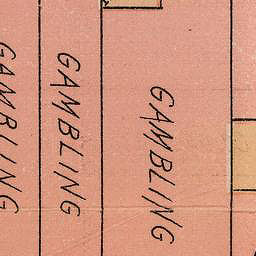 GAMBLING
GAMBLING
GAMBLING